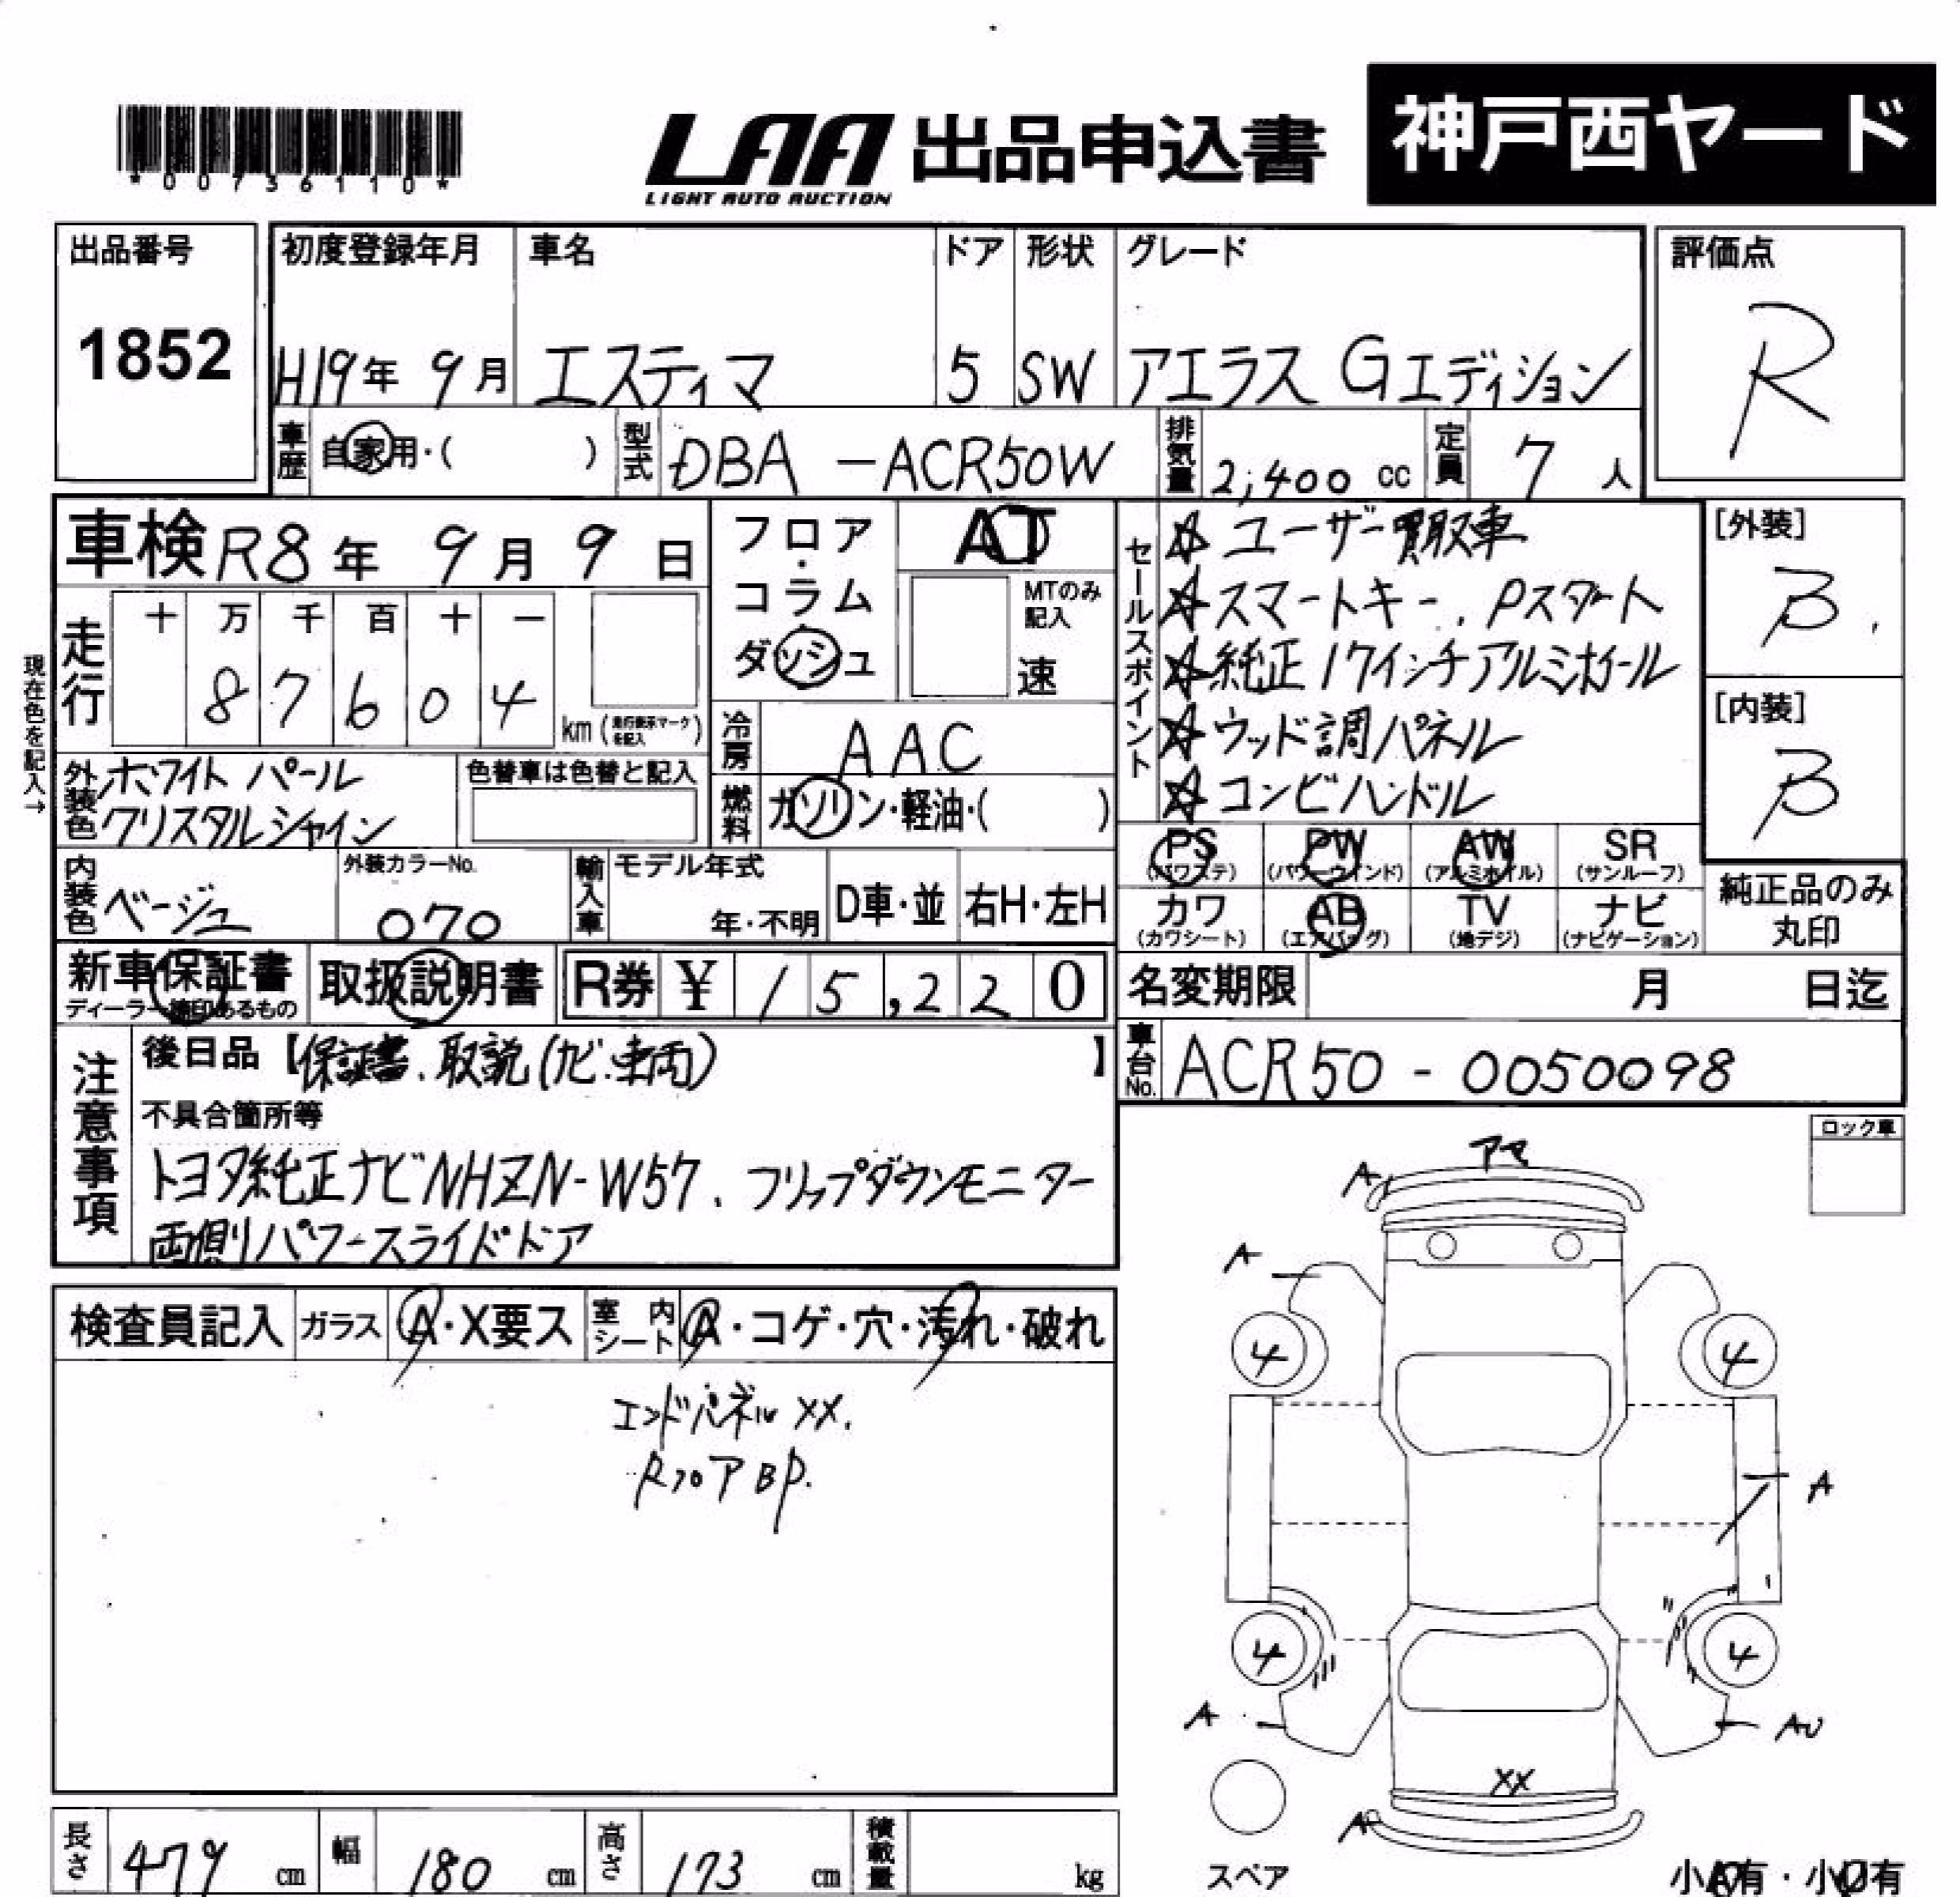 *00736110*
LAA 出品申込書 神戸西ヤード
LIGHT AUTO AUCTION
出品番号 初度登録年月 車名 ドア 形状 グレード 評価点
1852 H19年 9月 エスティマ 5 SW アエラス Gエディション R
車歴 自家用・( ) 型式 DBA -ACR50W 排気量 2,400 cc 定員 7 人
車検 R8年 9月 9日 フロア・コラム ダッシュ AT MTのみ記入 速
セールスポイント
☆ユーザー買取車
☆スマートキー、Pスタート
☆純正17インチアルミホイール
☆ウッド調パネル
☆コンビハンドル
[外装] B
[内装] B
現在色を記入→
走行 十 万 千 百 十 一
8 7 6 0 4 km (走行表示マークを記入)
冷房 AAC
外装色 ホワイトパール
クリスタルシャイン
色替車は色替と記入
燃料 ガソリン・軽油・( )
PS (パワステ) PW (パワーウインド) AW (アルミホイル) SR (サンルーフ)
カワ (カワシート) AB (エアバッグ) TV (地デジ) ナビ (ナビゲーション)
純正品のみ
丸印
内装色 ベージュ 外装カラーNo. 070 輸入車 モデル年式 年・不明 D車・並 右H・左H
新車保証書 取扱説明書 R券 ¥ 15,220
ディーラー捺印あるもの
名変期限 月 日迄
車台No. ACR50 - 0050098
注意事項
後日品【保証書、取説(ナビ、車両) 】
不具合箇所等
トヨタ純正ナビNHZN-W57、フリップダウンモニター
両側パワースライドドア
ロック車
アマ
A
A
4 4
A
4 4
A AU
XX
A
スペア
小A有・小U有
検査員記入 ガラス A・X要ス 室内シート A・コゲ・穴・汚れ・破れ
エンドパネルXX.
Rフロア BP.
長さ 479 cm 幅 180 cm 高さ 173 cm 積載量 kg